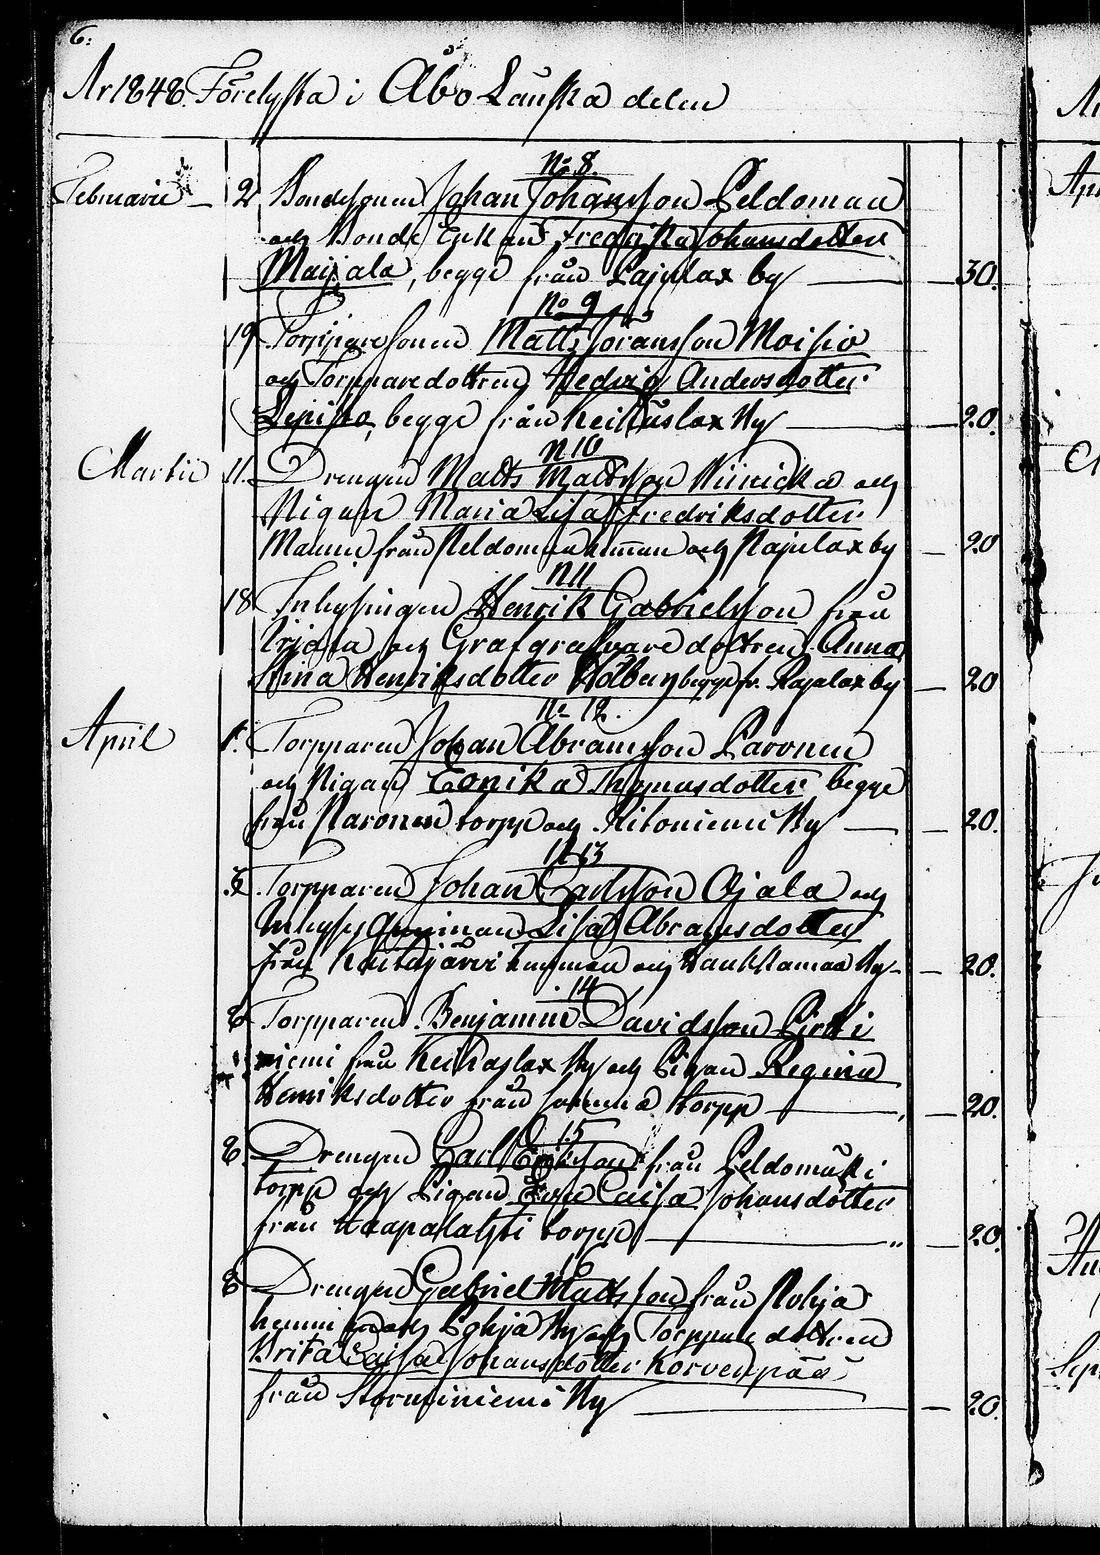 6.
År 1848. Förelysta i Åbo Länska delen
No 8.
Februarii 2 Bondesonen Johan Johansson Peldoman
och Bonde Enkan Fredrika Johansdotter
Maijala, begge från Lajulax by 30.
No 9
19 Torpparesonen Matts Göransson Moisio
och Torpparedottren Hedvig Andersdotter
Lepistö, begge från Keikuslax By 20.
N 10
Martii 11. Drengen Matts Mattsson Niinicka och
Pigan Maria Lisa Fredriksdotter
från Peldoman hemman och Rajulax by 20
N 11
18 Inhysingen Henrik Gabrielsson från
och Grafgräfvaredottren Anna
Stina Henriksdotter Holberg begge fr. Rajalax by 20
No 12.
April 1. Torpparen Johan Abramsson Paronen
och Pigan Eonika Thomasdotter begge
från Paronen torpp och Ritoniemi By 20.
N 13
Torpparen Johan Carlsson Ojala och
Inhyses Qvinnan Lisa Abramsdotter
från hemman och By 20.
14
6 Torpparen Benjamin Davidsson
niemi från Keikaslax By och Pigan Regina
Henriksdotter från torpp 20.
15
8. Drengen Carl Eriksson från Peldomäki
torpp och Pigan Eva Caisa Johansdotter
från Haapalahti torpp 20.
16
8 Drengen Gabriel Mattsson från Pohja
hemman och Pohja By och Torppare dottren
Brita Caisa Johansdotter Korvenpää
från Storminiemi By 20.